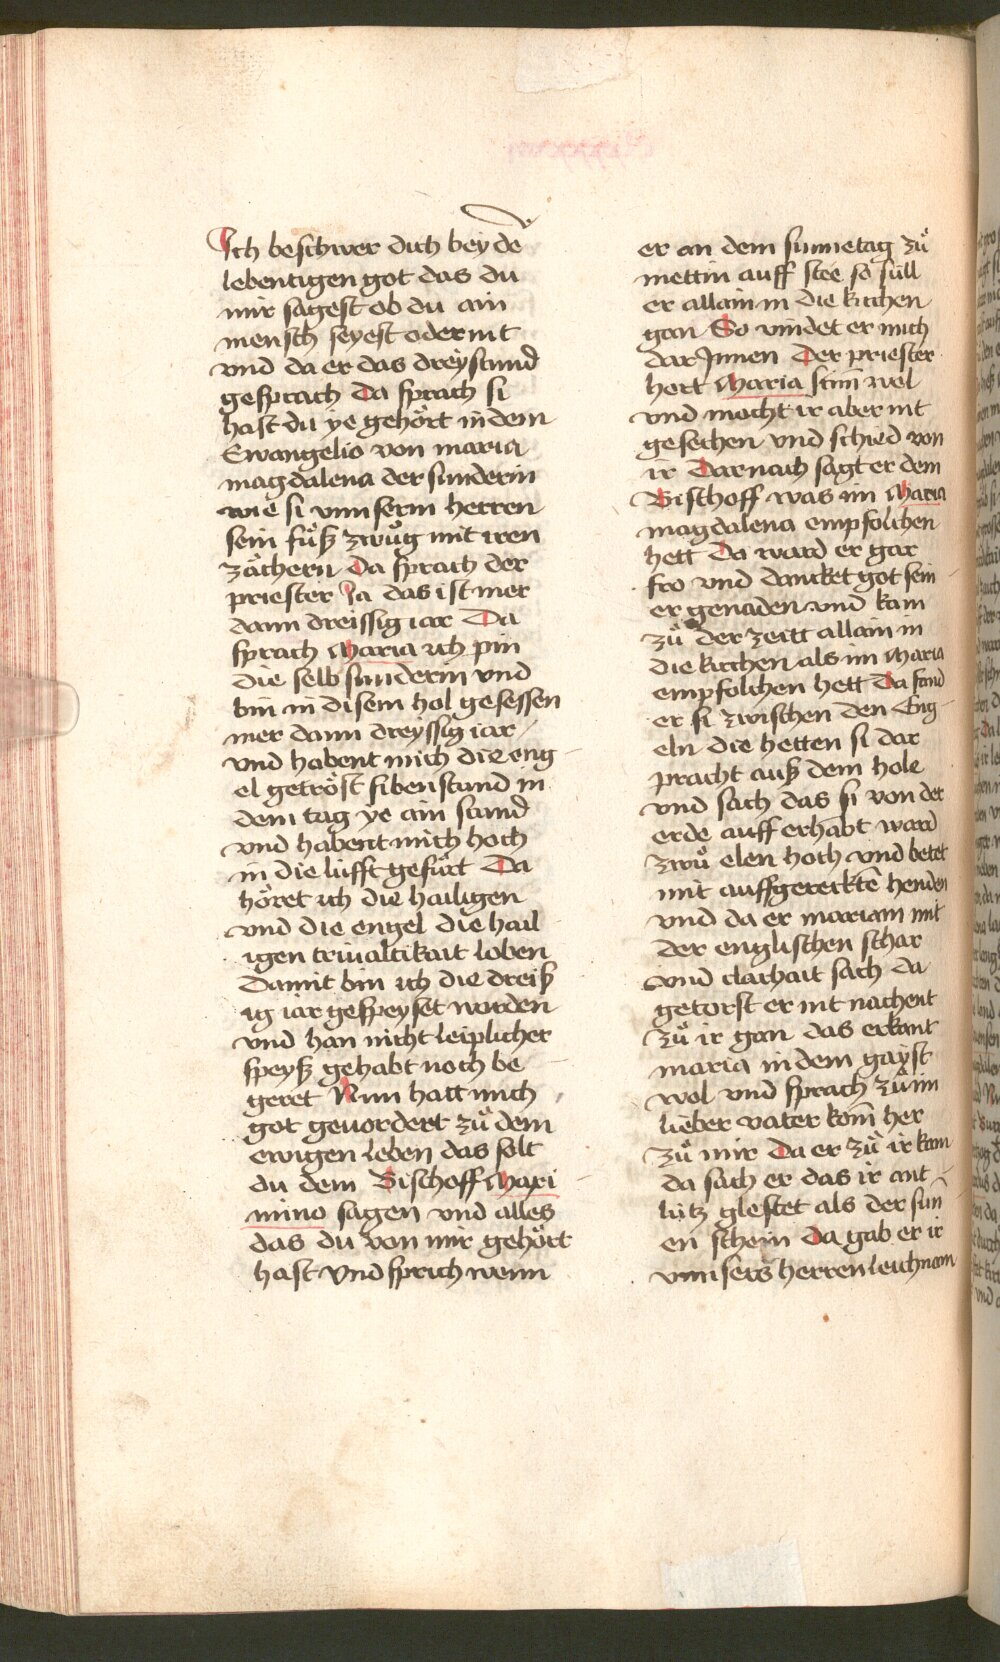 Ich beschwer dich bey dē
lebentigen got das du
mir sagest ob du ain
mensch seyest oder nit
vnd da er das dreystund
gesprach Da sprach si
hast du ye gehört in dem
Ewangelio von maria
magdalena der sunderin
wie si vnnserm herren
sein fu̍ß zwůg mit iren
zächern Da sprach der
priester Ja das ist mer
dann dreissig iar Da
sprach Maria ich pin
die selb sunderin vnd
bin in disem hol gesessen
mer dann dreyssig iar
vnd habent mich die eng
el getröst sibenstund in
dem tag ye ain stund
vnd habent mich hoch
in die lufft gefürt Da
höret ich die hailigen
vnd die engel die hail
igen triualtikait loben
Damit bin ich die dreiß
ig iar gespeyset worden
vnd han nicht leiplicher
speyß gehabt noch be
geret Nun hatt mich
got geuordert zů dem
ewigen leben das solt
du dem Bischoff Maxi
mino sagen vnd alles
das du von mir gehört
hast Vnd sprich wenn
er an dem sunnetag zů
mettin auff stee so süll
er allain in die kirchen
gan So vindet er mich
dar Jnnen Der priester
hort Maria stim̄ wol
vnd mocht ir aber nit
gesechen vnd schied von
ir Darnach sagt er dem
Bischoff was im Maria
magdalena empfolchen
hett Da ward er gar
fro vnd dancket got sein
er genaden vnd kam
zů der zeitt allain in
die kirchen als im Maria
empfolchen hett Da fand
er si zwischen den Eng
eln die hetten si dar
pracht auß dem hole
vnd sach das si von der
erde auff erhabt ward
zwů elen hoch vnd betet
mit auffgereckten̄ henden
vnd da er mariam mit
der englischen schar
vnd clarhait sach da
getorst er nit nachent
zů ir gan das erkant
maria in dem gayst
wol vnd sprach zů im
lieber vater kom̄ her
zů mir Da er zů ir kam
da sach er das ir ant
lütz glestet als der sun̄
en schein Da gab er ir
vnnsers herren leichnam